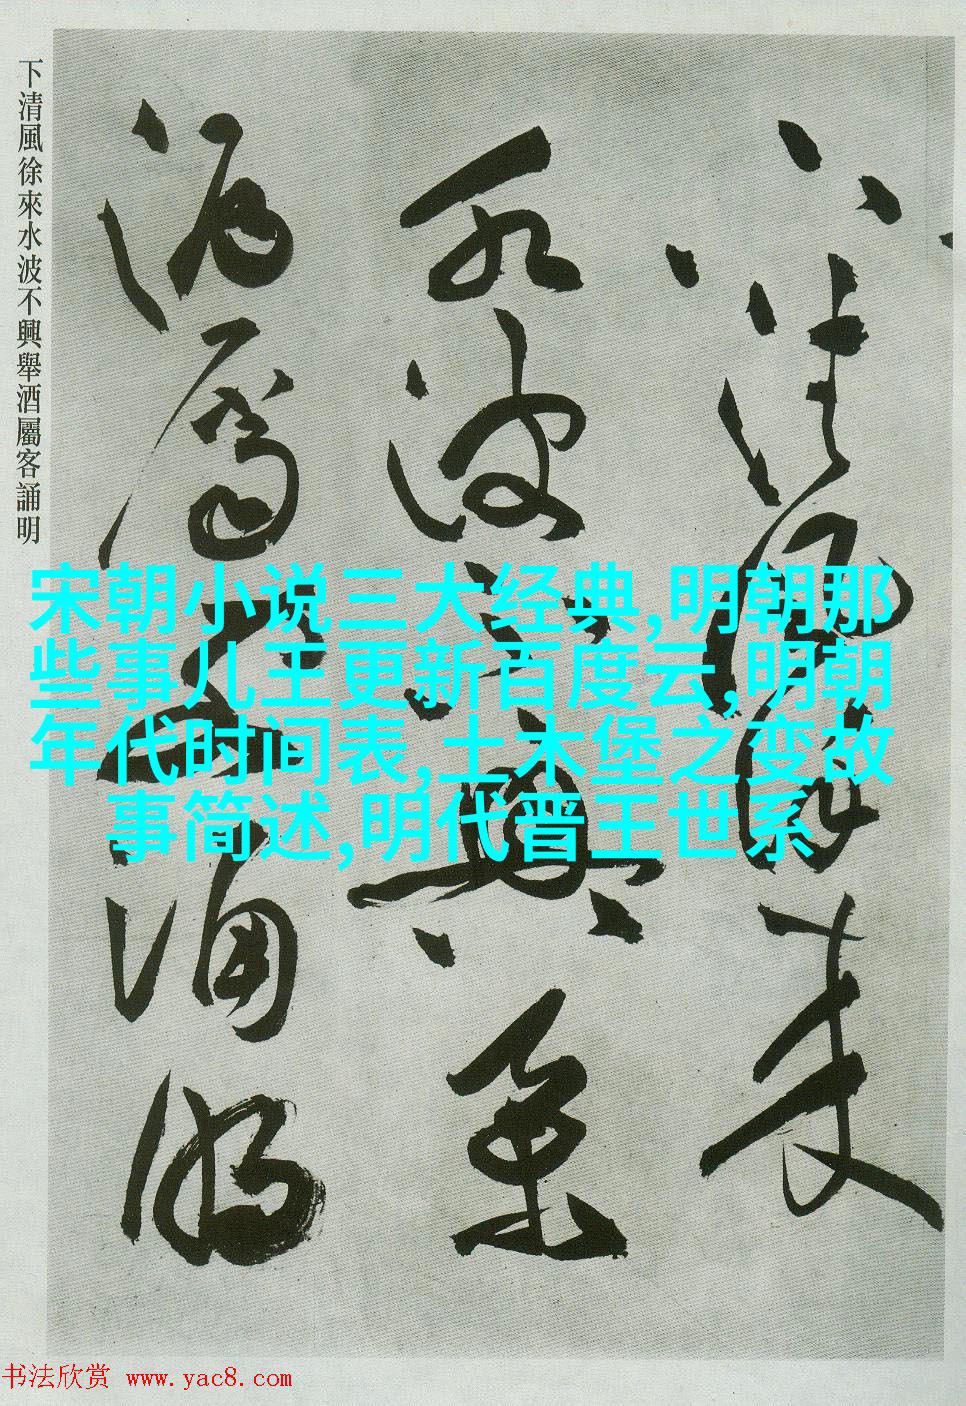 下清風徐來水波不興舉酒屬客誦明
下清風徐來
水波不興舉
酒屬客誦明
宋朝小说三大经典,明朝那
些事儿王更新百度云,明朝
年代时间表,土木堡之变故
事简述,明代晋王世系
书法欣赏 www.yac8.com